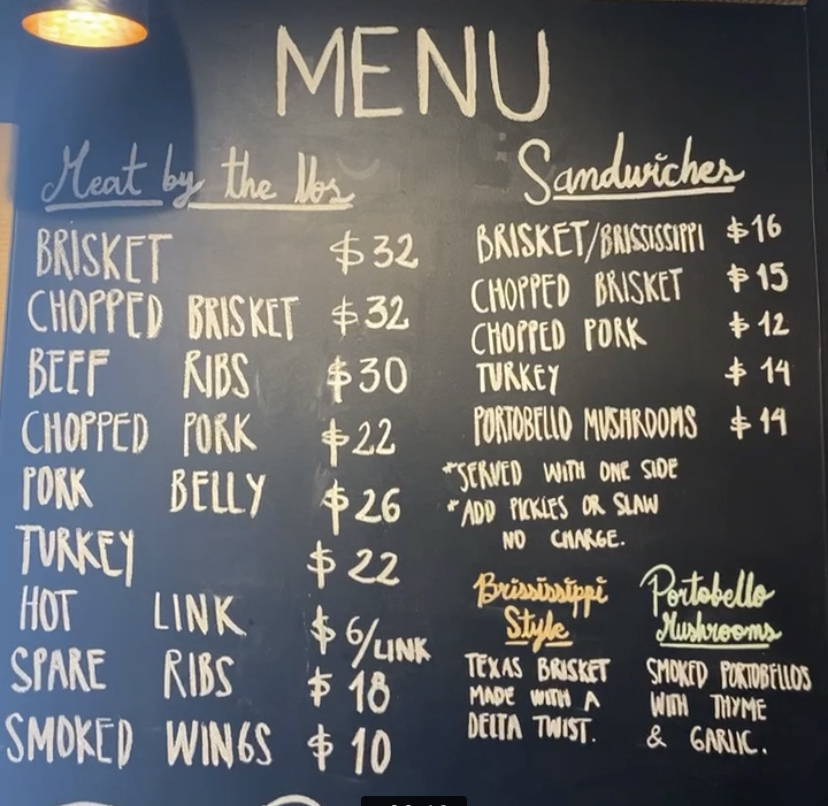 MENU
Meat by the lbs
BRISKET $32
CHOPPED BRISKET $32
BEEF RIBS $30
CHOPPED PORK $22
PORK BELLY $26
TURKEY $22
HOT LINK $6/LINK
SPARE RIBS $18
SMOKED WINGS $10
Sandwiches
BRISKET/BRISSISSIPPI $16
CHOPPED BRISKET $15
CHOPPED PORK $12
TURKEY $14
PORTOBELLO MUSHROOMS $14
*SERVED WITH ONE SIDE
*ADD PICKLES OR SLAW
NO CHARGE.
Brississippi
Style
TEXAS BRISKET
MADE WITH A
DELTA TWIST.
Portobello
Mushrooms
SMOKED PORTOBELLOS
WITH THYME
& GARLIC.